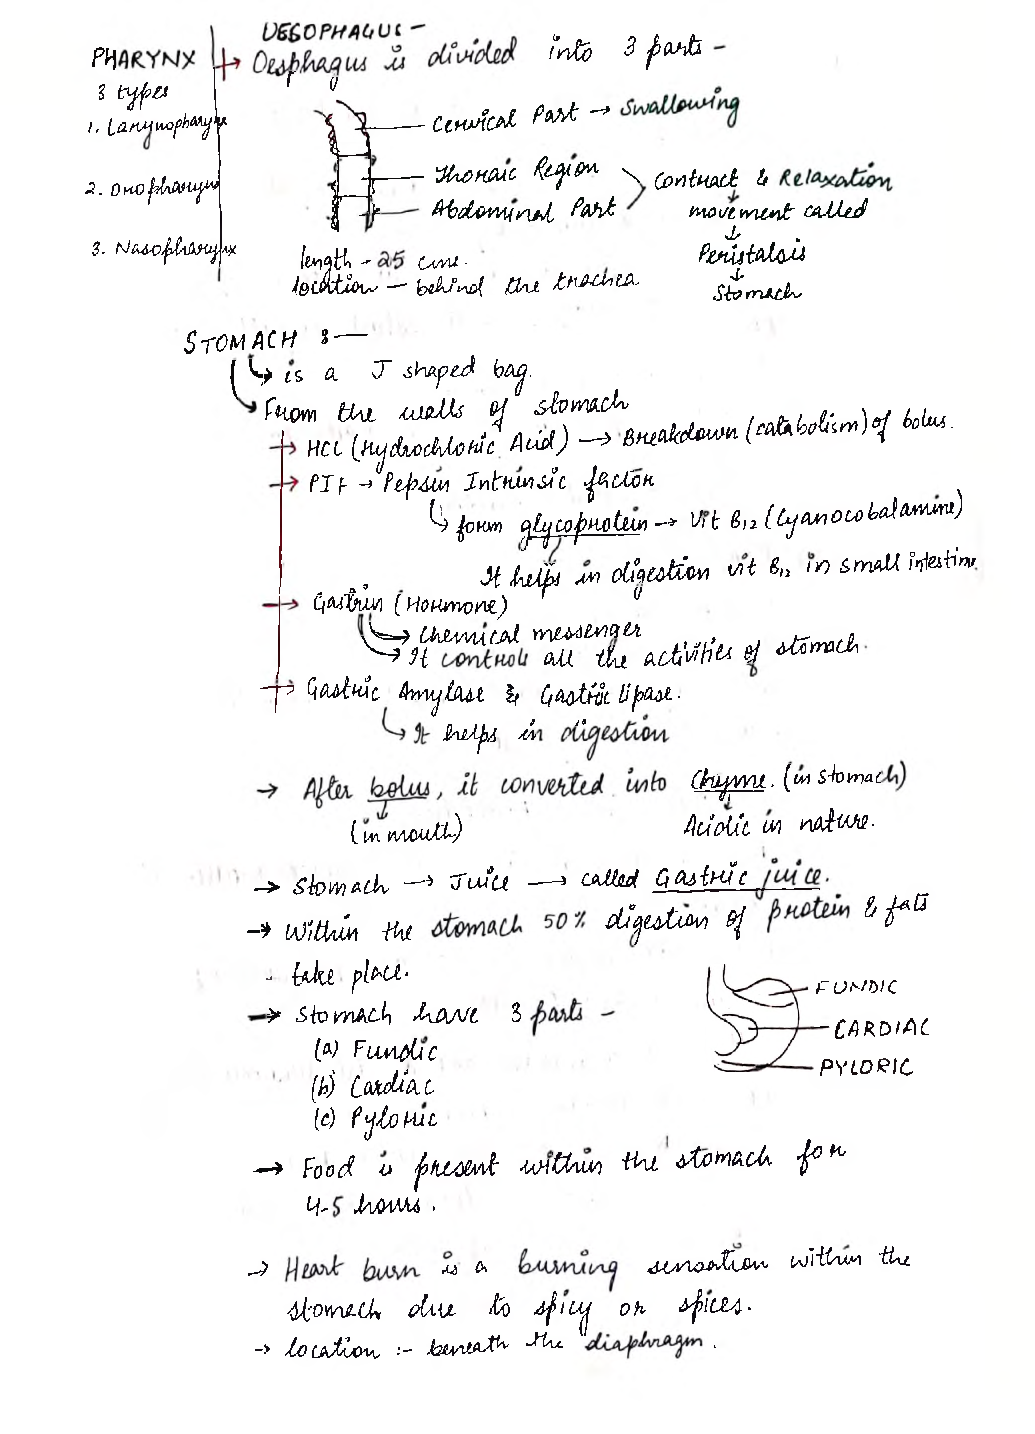 OESOPHAGUS -
PHARYNX → Oesphagus is divided into 3 parts -
3 types
1. Larynopharynx
2. Oropharynx
3. Nasopharynx
Cervical Part → Swallowing
Thoraic Region
Abdominal Part
Contract & Relaxation
movement called
↓
Peristalsis
↓
Stomach
length - 25 cm.
location - behind the trachea
STOMACH :-
↳ is a J shaped bag.
↳ From the walls of stomach
→ HCL (Hydrochloric Acid) → Breakdown (catabolism) of bolus.
→ PIF → Pepsin Intrinsic factor
↳ form glycoprotein → Vit B12 (Cyanocobalamine)
It helps in digestion vit B12 in small intestine.
→ Gastrin (Hormone)
→ Chemical messenger
→ It controls all the activities of stomach.
→ Gastric Amylase & Gastric lipase.
↳ It helps in digestion
→ After bolus, it converted into Chyme. (in stomach)
(in mouth) Acidic in nature.
→ Stomach → Juice → called Gastric juice.
→ Within the stomach 50% digestion of protein & fats
take place.
→ Stomach have 3 parts -
(a) Fundic
(b) Cardiac
(c) Pyloric
FUNDIC
CARDIAC
PYLORIC
→ Food is present within the stomach for
4-5 hours.
→ Heart burn is a burning sensation within the
stomach due to spicy or spices.
→ location :- beneath the diaphragm.